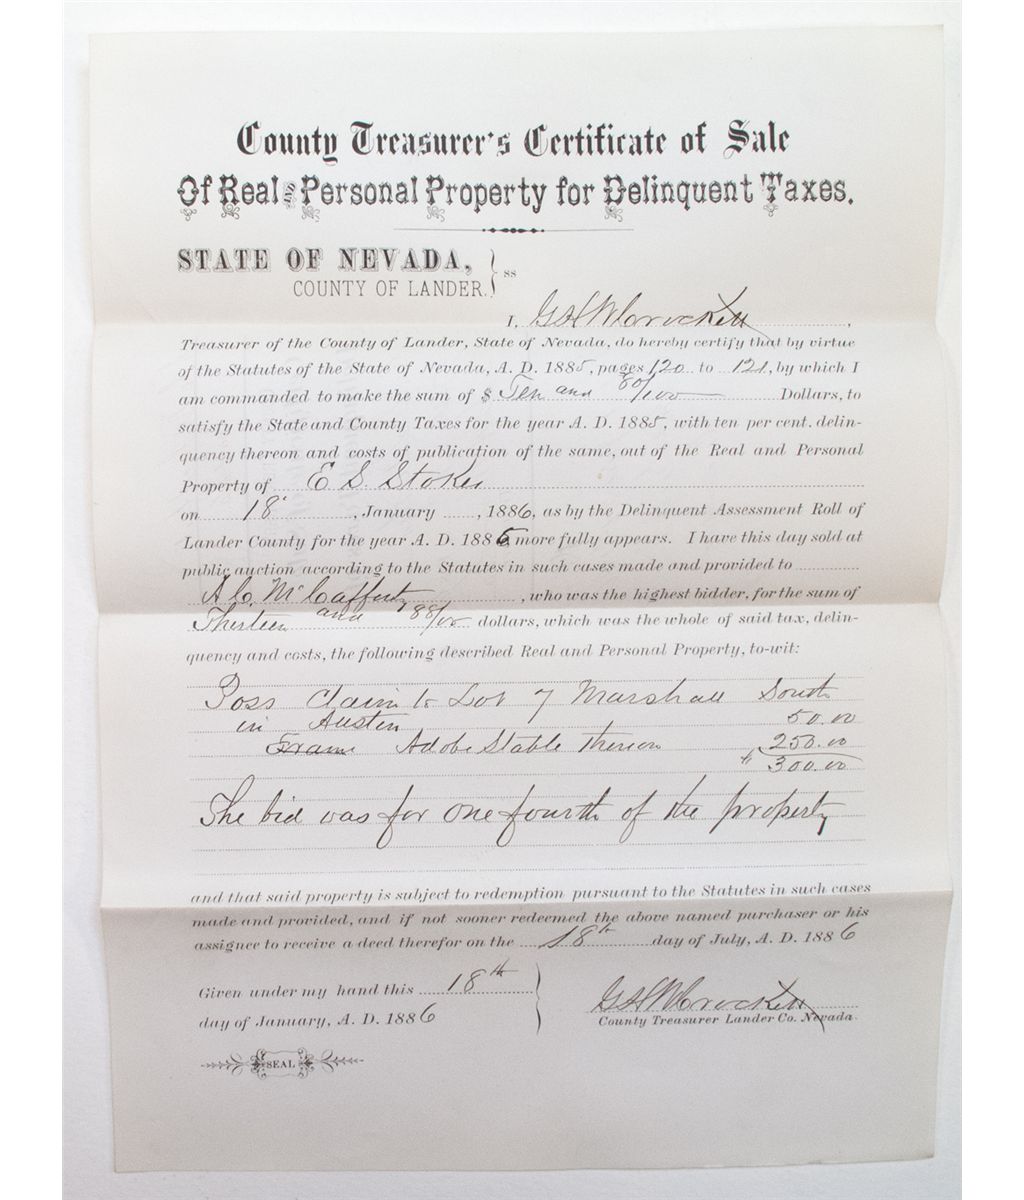 County Treasurer's Certificate of Sale
Of Real and Personal Property for Delinquent Taxes.
STATE OF NEVADA, } ss
COUNTY OF LANDER.
I, G H W Crockett,
Treasurer of the County of Lander, State of Nevada, do hereby certify that by virtue
of the Statutes of the State of Nevada, A. D. 1885, pages 120 to 121, by which I
am commanded to make the sum of $ Ten and 80/100 Dollars, to
satisfy the State and County Taxes for the year A. D. 1885, with ten per cent. delin-
quency thereon and costs of publication of the same, out of the Real and Personal
Property of E S. Stokes
on 18', January, 1886, as by the Delinquent Assessment Roll of
Lander County for the year A. D. 1885 more fully appears. I have this day sold at
public auction according to the Statutes in such cases made and provided to
A C McCafferty, who was the highest bidder, for the sum of
Thirteen and 88/100 dollars, which was the whole of said tax, delin-
quency and costs, the following described Real and Personal Property, to-wit:
Poss Claim to Lot 7 Marshall South
in Austin 50.00
Frame Adobe Stable thereon 250.00
$ 300.00
The bid was for one fourth of the property
and that said property is subject to redemption pursuant to the Statutes in such cases
made and provided, and if not sooner redeemed the above named purchaser or his
assignee to receive a deed therefor on the 18th day of July, A. D. 1886
Given under my hand this 18th
day of January, A. D. 1886
G H W Crockett
County Treasurer Lander Co. Nevada.
SEAL